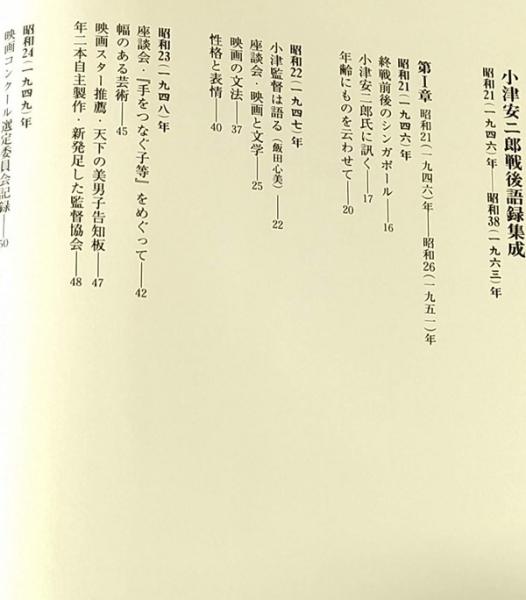 小津安二郎戦後語録集成
昭和21(一九四六)年――昭和38(一九六三)年
第Ⅰ章 昭和21(一九四六)年――昭和26(一九五一)年
昭和21(一九四六)年
終戦前後のシンガポール――16
小津安二郎氏に訊く――17
年齢にものを云わせて――20
昭和22(一九四七)年
小津監督は語る(飯田心美)――22
座談会・映画と文学――25
映画の文法――37
性格と表情――40
昭和23(一九四八)年
座談会・『手をつなぐ子等』をめぐって――42
幅のある芸術――45
映画スター推薦・天下の美男子告知板――47
年二本自主製作・新発足した監督協会――48
昭和24(一九四九)年
映画コンクール選定委員会記録――50